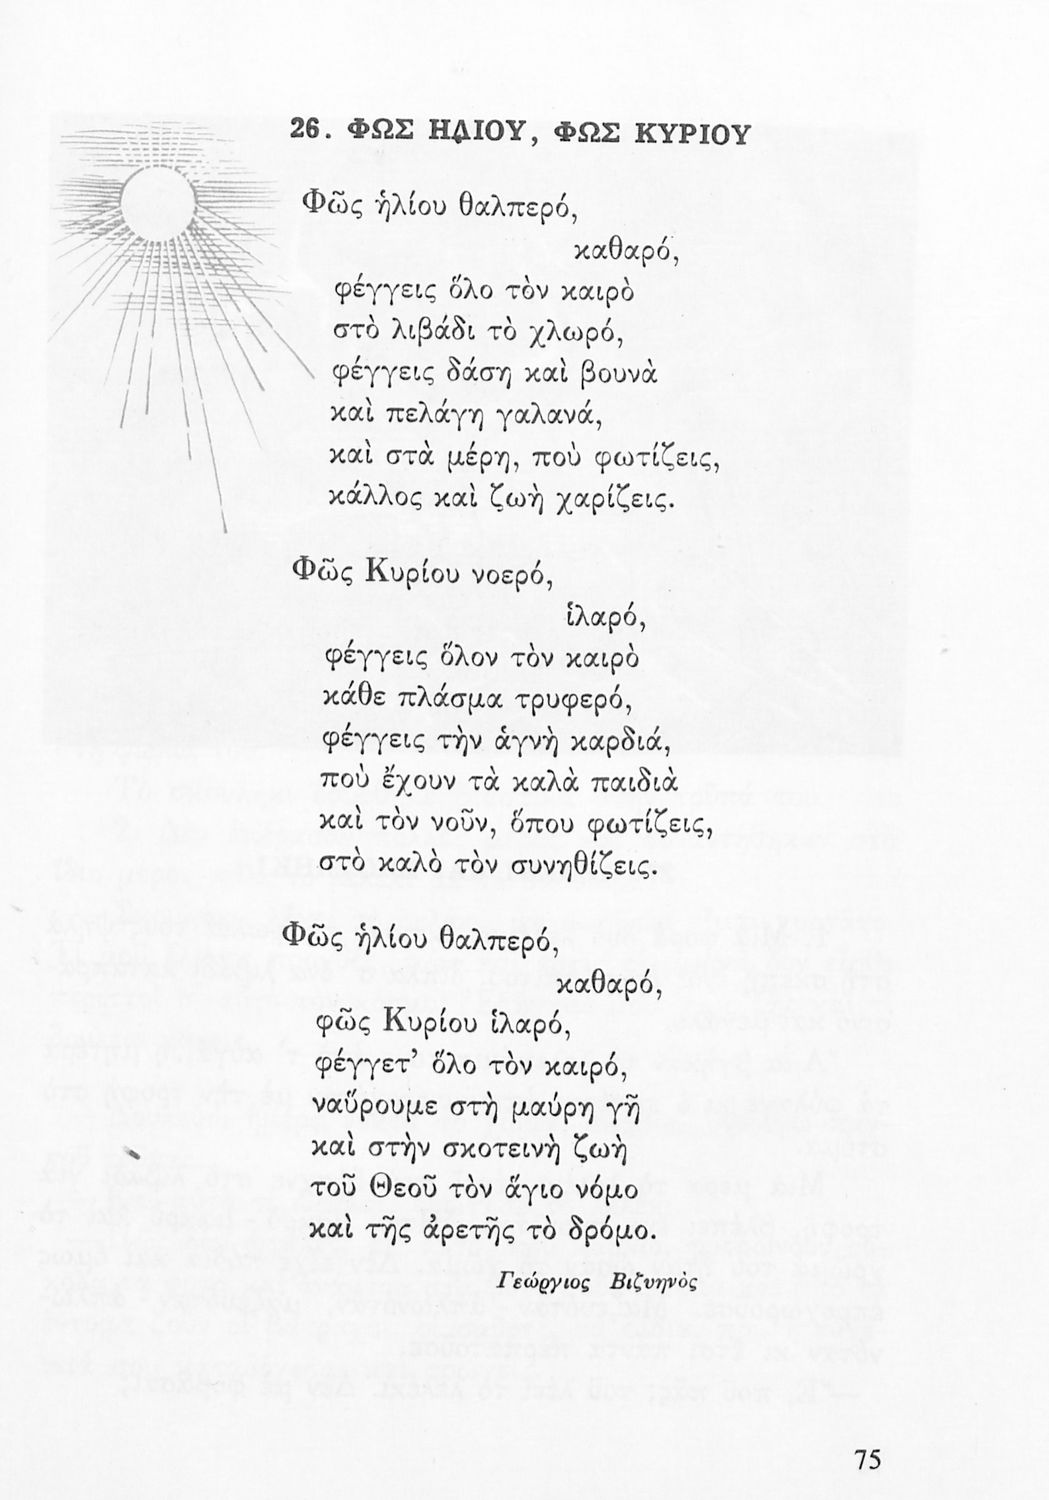 26. ΦΩΣ ΗΛΙΟΥ, ΦΩΣ ΚΥΡΙΟΥ
Φῶς ἡλίου θαλπερό,
καθαρό,
φέγγεις ὅλο τὸν καιρὸ
στὸ λιβάδι τὸ χλωρό,
φέγγεις δάση καὶ βουνὰ
καὶ πελάγη γαλανά,
καὶ στὰ μέρη, ποὺ φωτίζεις,
κάλλος καὶ ζωὴ χαρίζεις.
Φῶς Κυρίου νοερό,
ἱλαρό,
φέγγεις ὅλον τὸν καιρὸ
κάθε πλάσμα τρυφερό,
φέγγεις τὴν ἁγνὴ καρδιά,
ποὺ ἔχουν τὰ καλὰ παιδιὰ
καὶ τὸν νοῦν, ὅπου φωτίζεις,
στὸ καλὸ τὸν συνηθίζεις.
Φῶς ἡλίου θαλπερό,
καθαρό,
φῶς Κυρίου ἱλαρό,
φέγγετ’ ὅλο τὸν καιρό,
ναὕρουμε στὴ μαύρη γῆ
καὶ στὴν σκοτεινὴ ζωὴ
τοῦ Θεοῦ τὸν ἅγιο νόμο
καὶ τῆς ἀρετῆς τὸ δρόμο.
Γεώργιος Βιζυηνὸς
75